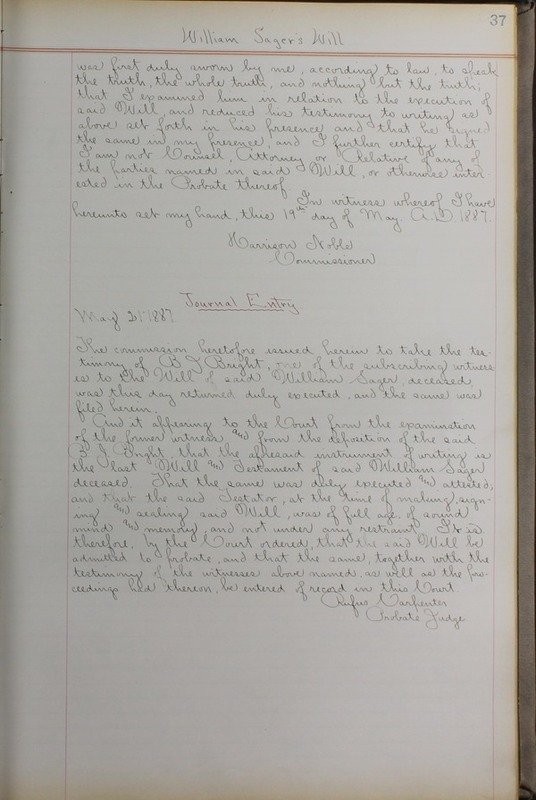 37
William Sager's Will
was first duly sworn by me, according to law, to speak
the truth, the whole truth, and nothing but the truth;
that I examined him in relation to the execution of
said Will and reduced his testimony to writing as
above set forth in his presence and that he signed
the same in my presence, and I further certify that
I am not Counsel, Attorney or Relative of any of
the parties named in said Will, or otherwise inter
ested in the Probate thereof
In witness whereof I have
hereunto set my hand, this 19th day of May. A.D. 1887.
Harrison Noble
Commissioner
Journal Entry
May 21st 1887
The commission heretofore issued herein to take the tes-
timony of B I Bright, one of the subscribing witness
es to the Will of said William Sager, deceased,
was this day returned duly executed, and the same was
filed herein.
And it appearing to the Court from the examination
of the former witness, and from the deposition of the said
B. I. Bright, that the aforesaid instrument of writing is
the last Will and Testament of said William Sager
deceased. That the same was duly executed and attested;
and that the said Testator, at the time of making, sign-
ing and sealing said Will, was of full age, of sound
mind and memory, and not under any restraint. It is
therefore, by the Court ordered, that the said Will be
admitted to probate, and that the same, together with the
testimony of the witnesses above named, as well as the pro-
ceedings had thereon, be entered of record in this Court
Rufus Carpenter
Probate Judge